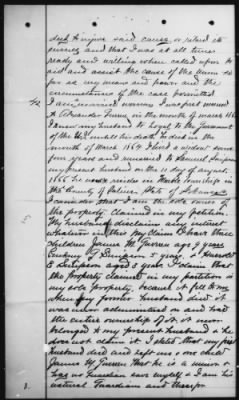 deed to injure said cause or retard its
success and that I was at all times
ready and willing when called upon to
aid and assist the cause of the Union so
far as my means and power and the
circumstances of the case permitted
42 I am married woman I was first married
to Alexander Furren in the month of March 186
I and my husband to loyal to the government
of the U.S. until his death he died in the
month of March 1864 I lived a widow some
four years and married to Samuel Simpson
my present husband on the 12 day of August
1868 in
County of Pulaski State of Arkansas
I consider that I am the sole owner of
the property claimed in my petition
My husband disclaims any interest
whatever in this my claim I have three
children James M. Furren age 9 years
Simpson 5 years, & Harriet
E Simpson aged 3 years I claim that
the property claimed in my petition is
my sole property, because it fell to me
when my former husband died it
was never administered on and had
the entire ownership of it, it never
belonged to my present husband & he
does not claim it I state that my first
husband died and left us one child
James M. Furren that he is a minor &
has no Guardian save myself & I am his
natural Guardian and therefor
3.